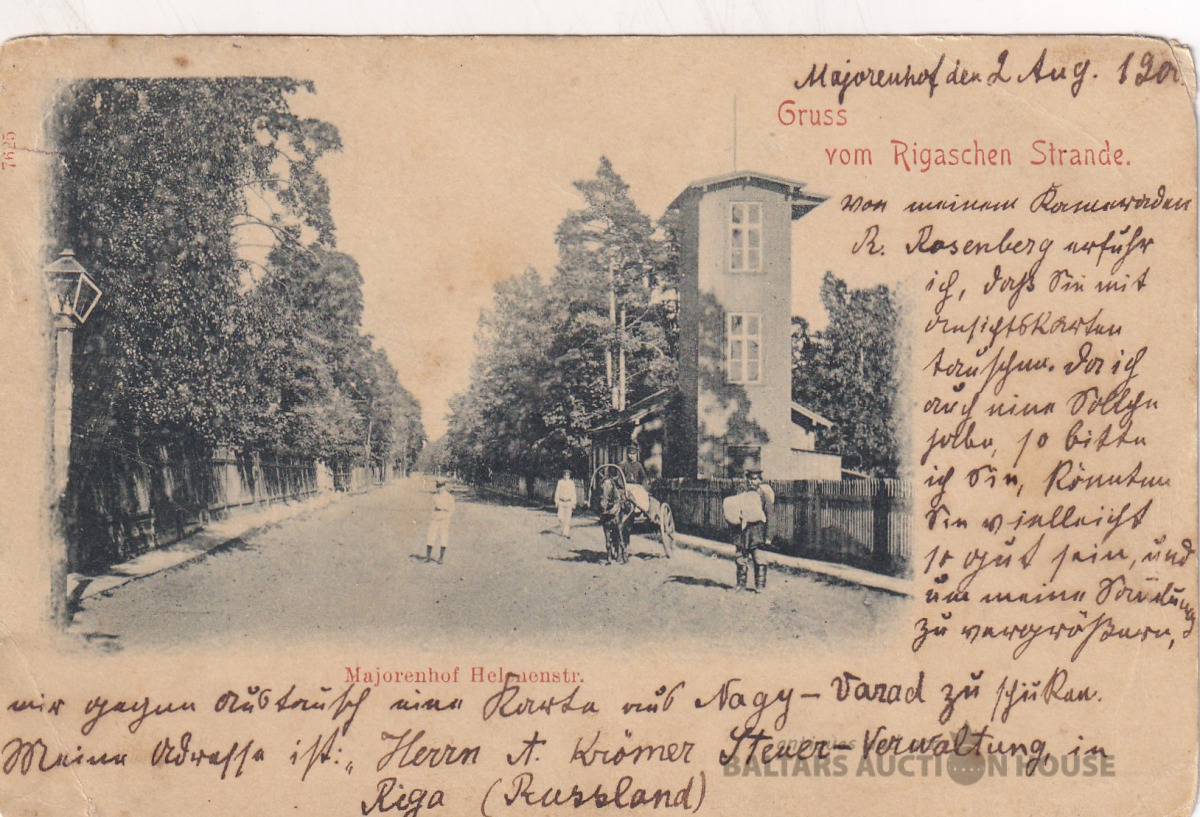 Majorenhof den 2 Aug. 190
Gruss
vom Rigaschen Strande.
7625
Von meinem Kameraden
R. Rosenberg erfuhr
ich, daß Sie mit
Ansichtskarten
tauschen. Da ich
auch eine Solche
habe, so bitte
ich Sie, Könnten
Sie vielleicht
so gut sein, und
um meine Samlung
zu vergrößern,
Majorenhof Helenenstr.
mir gegen Austausch eine Karte aus Nagy-Varad zu schiken.
Meine Adresse ist: „Herrn A. Krömer Steuer-Verwaltung, in
Riga (Russland)
BALTARS AUCTION HOUSE